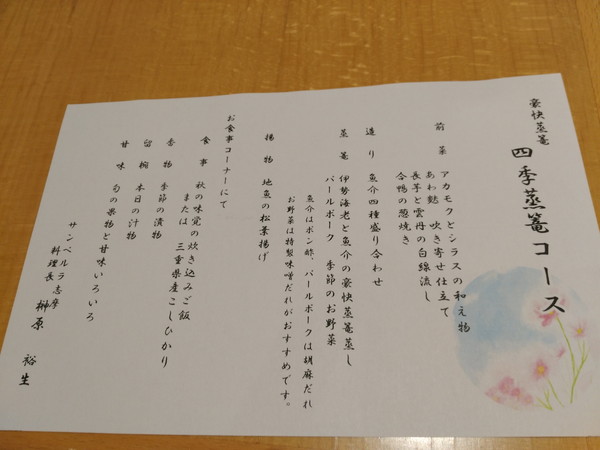 豪快蒸篭
四季蒸篭コース
前菜 アカモクとシラスの和え物
あわ麩 吹き寄せ仕立て
長芋と雲丹の白線流し
合鴨の葱焼き
造り 魚介四種盛り合わせ
蒸篭 伊勢海老と魚介の豪快蒸篭蒸し
パールポーク 季節のお野菜
魚介はポン酢、パールポークは胡麻だれ
お野菜は特製味噌だれがおすすめです。
揚物 地魚の松葉揚げ
お食事コーナーにて
食事 秋の味覚の炊き込みご飯
または 三重県産こしひかり
香物 季節の漬物
留椀 本日の汁物
甘味 旬の果物と甘味いろいろ
サンペルラ志摩
料理長 榊原 裕生